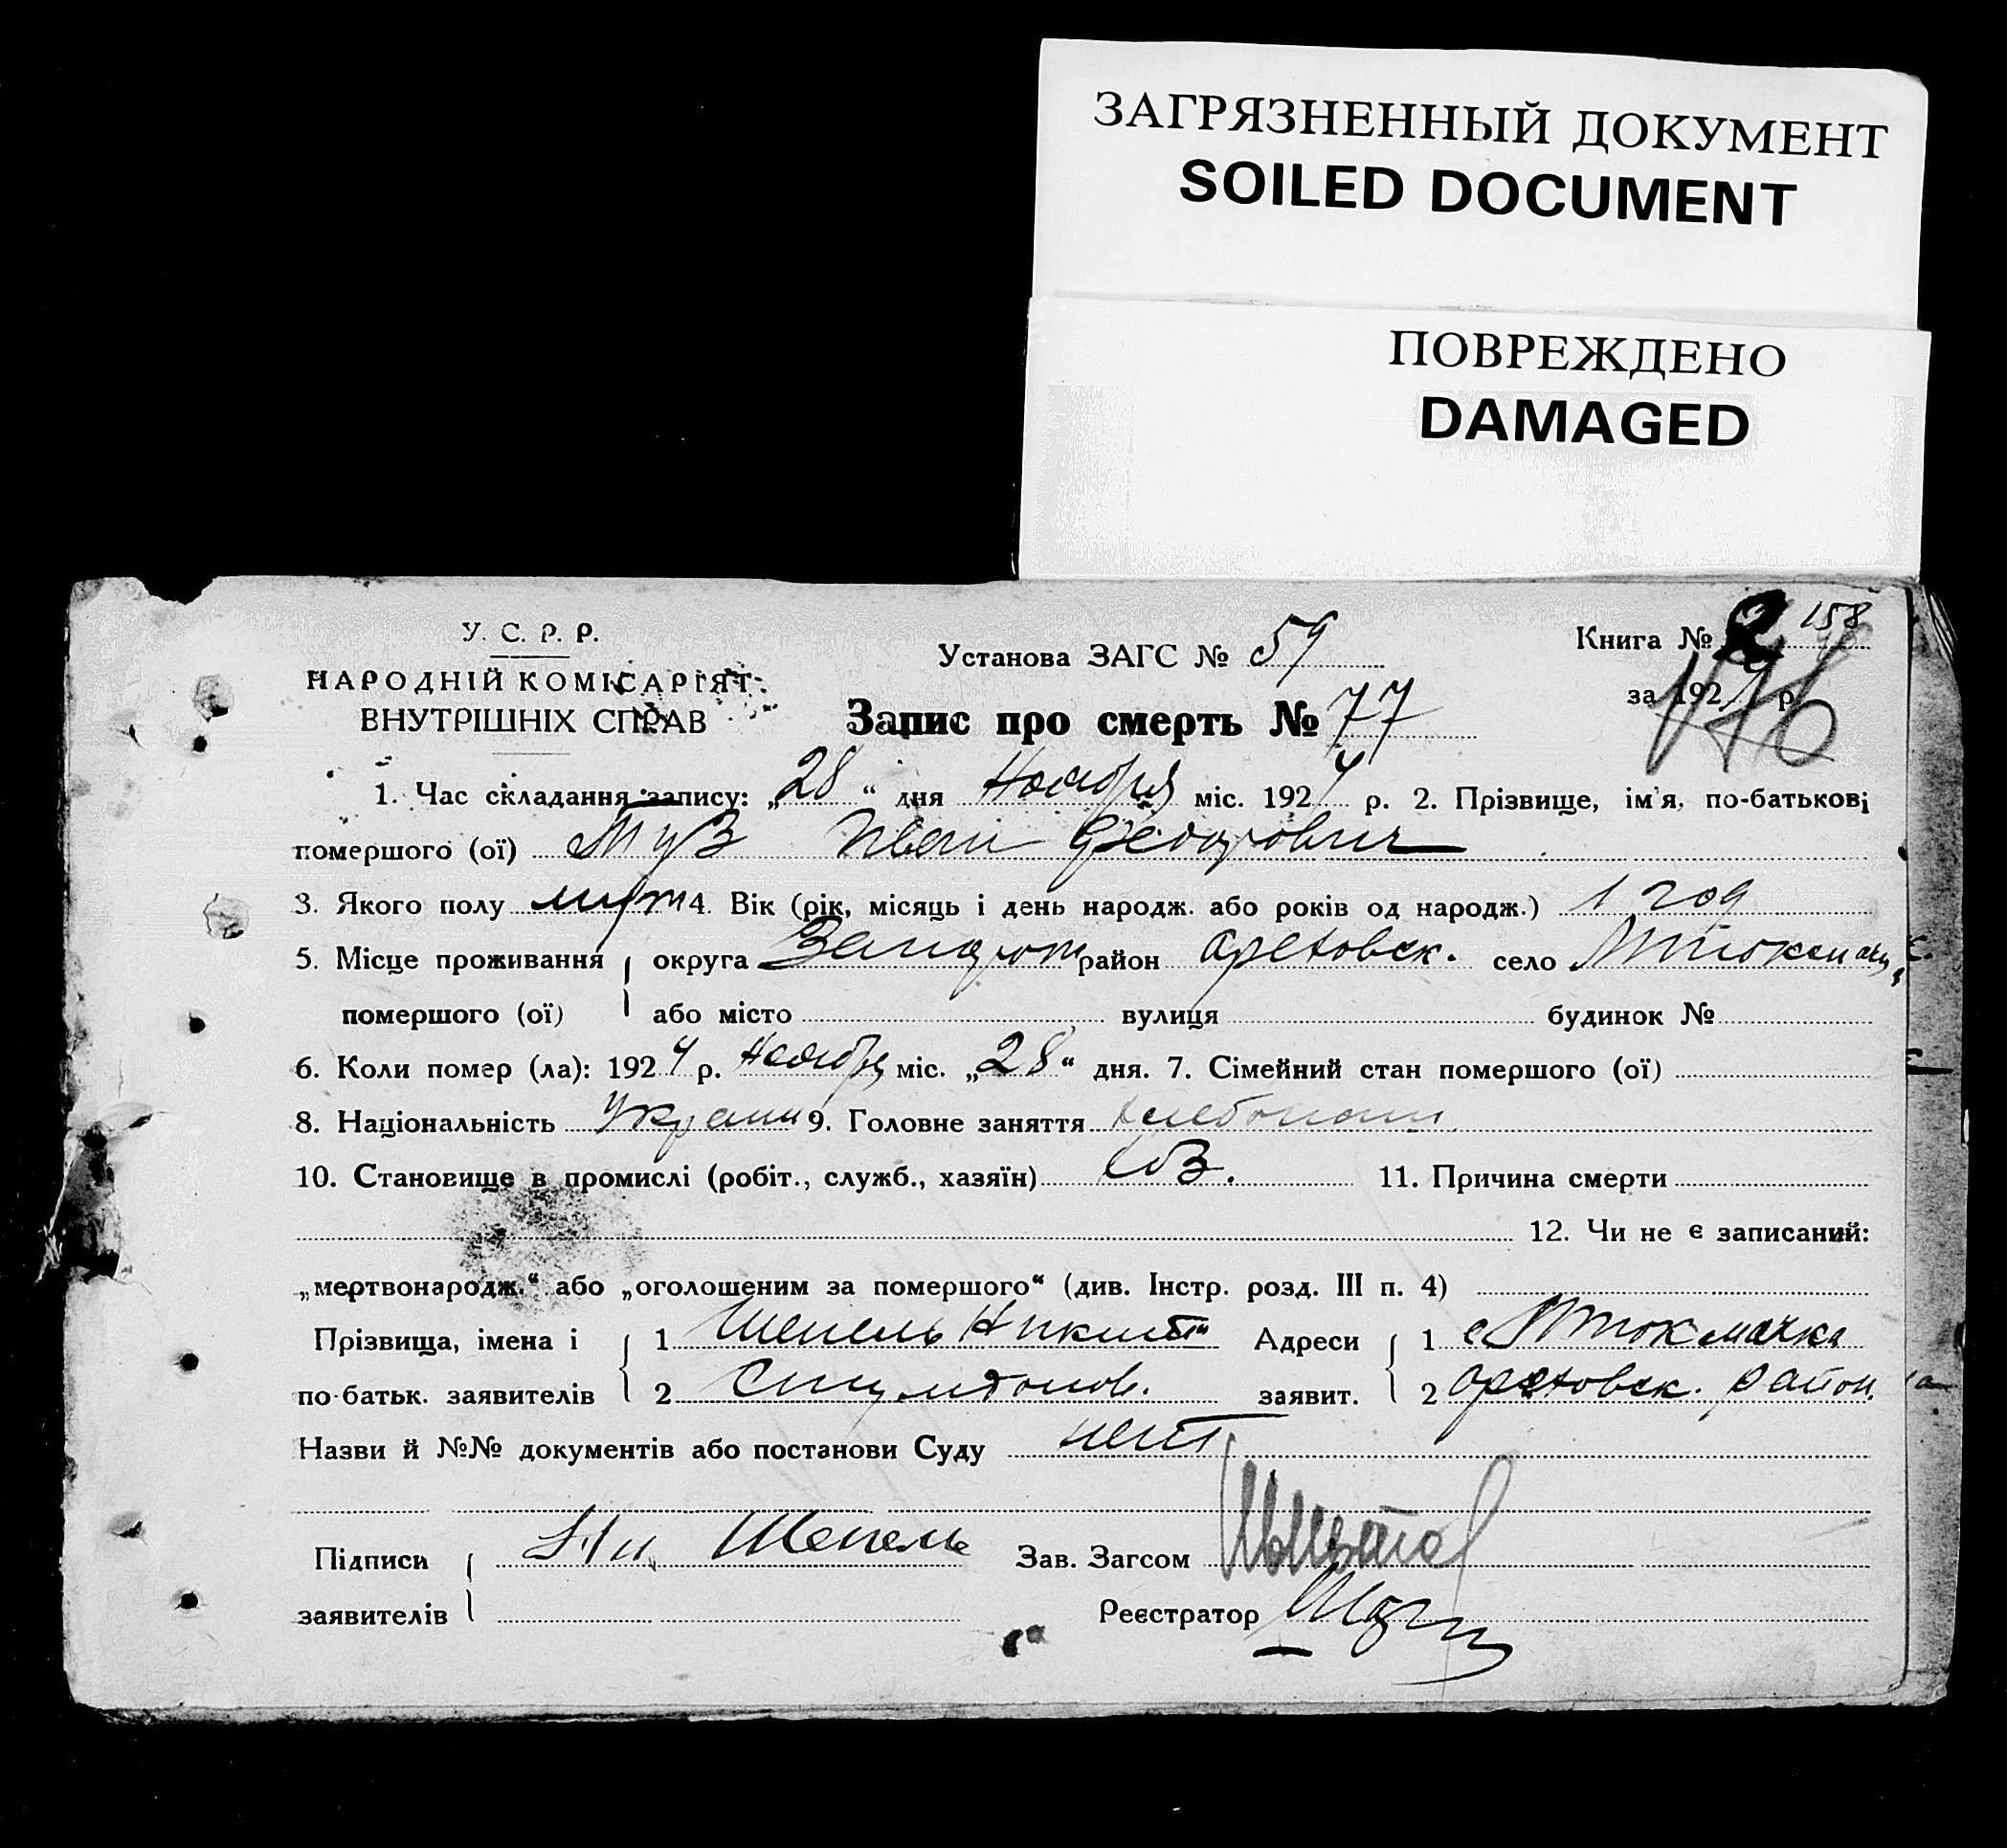 ЗАГРЯЗНЕННЫЙ ДОКУМЕНТ
SOILED DOCUMENT
ПОВРЕЖДЕНО
DAMAGED
У. С. Р. Р.
НАРОДНІЙ КОМІСАРІЯТ
ВНУТРІШНІХ СПРАВ
Установа ЗАГС № 59
Книга № 2 158
за 192 р.
176
Запис про смерть № 77
1. Час складання запису: „28“ дня Ноября міс. 1924 р. 2. Прізвище, ім'я, по-батькові
помершого (ої) Муз Иван Федорович
3. Якого полу муж 4. Вік (рік, місяць і день народж. або років од народж.) 1 год
5. Місце проживання округа Запорож район Ореховск. село
помершого (ої) або місто вулиця будинок №
6. Коли помер (ла): 1924 р. Ноября міс. „28“ дня. 7. Сімейний стан помершого (ої)
8. Національність Украин 9. Головне заняття хлебопаш.
10. Становище в промислі (робіт., служб., хазяїн) 11. Причина смерти
12. Чи не є записаний:
„мертвонародж.“ або „оголошеним за помершого“ (див. Інстр. розд. III п. 4)
Прізвища, імена і 1 Шепель Никита Адреси 1 с. Мтокмачка
по-батьк. заявителів 2 заявит. 2 Ореховск. район.
Назви й №№ документів або постанови Суду нет
Підписи Шепель Зав. Загсом
заявителів Реєстратор